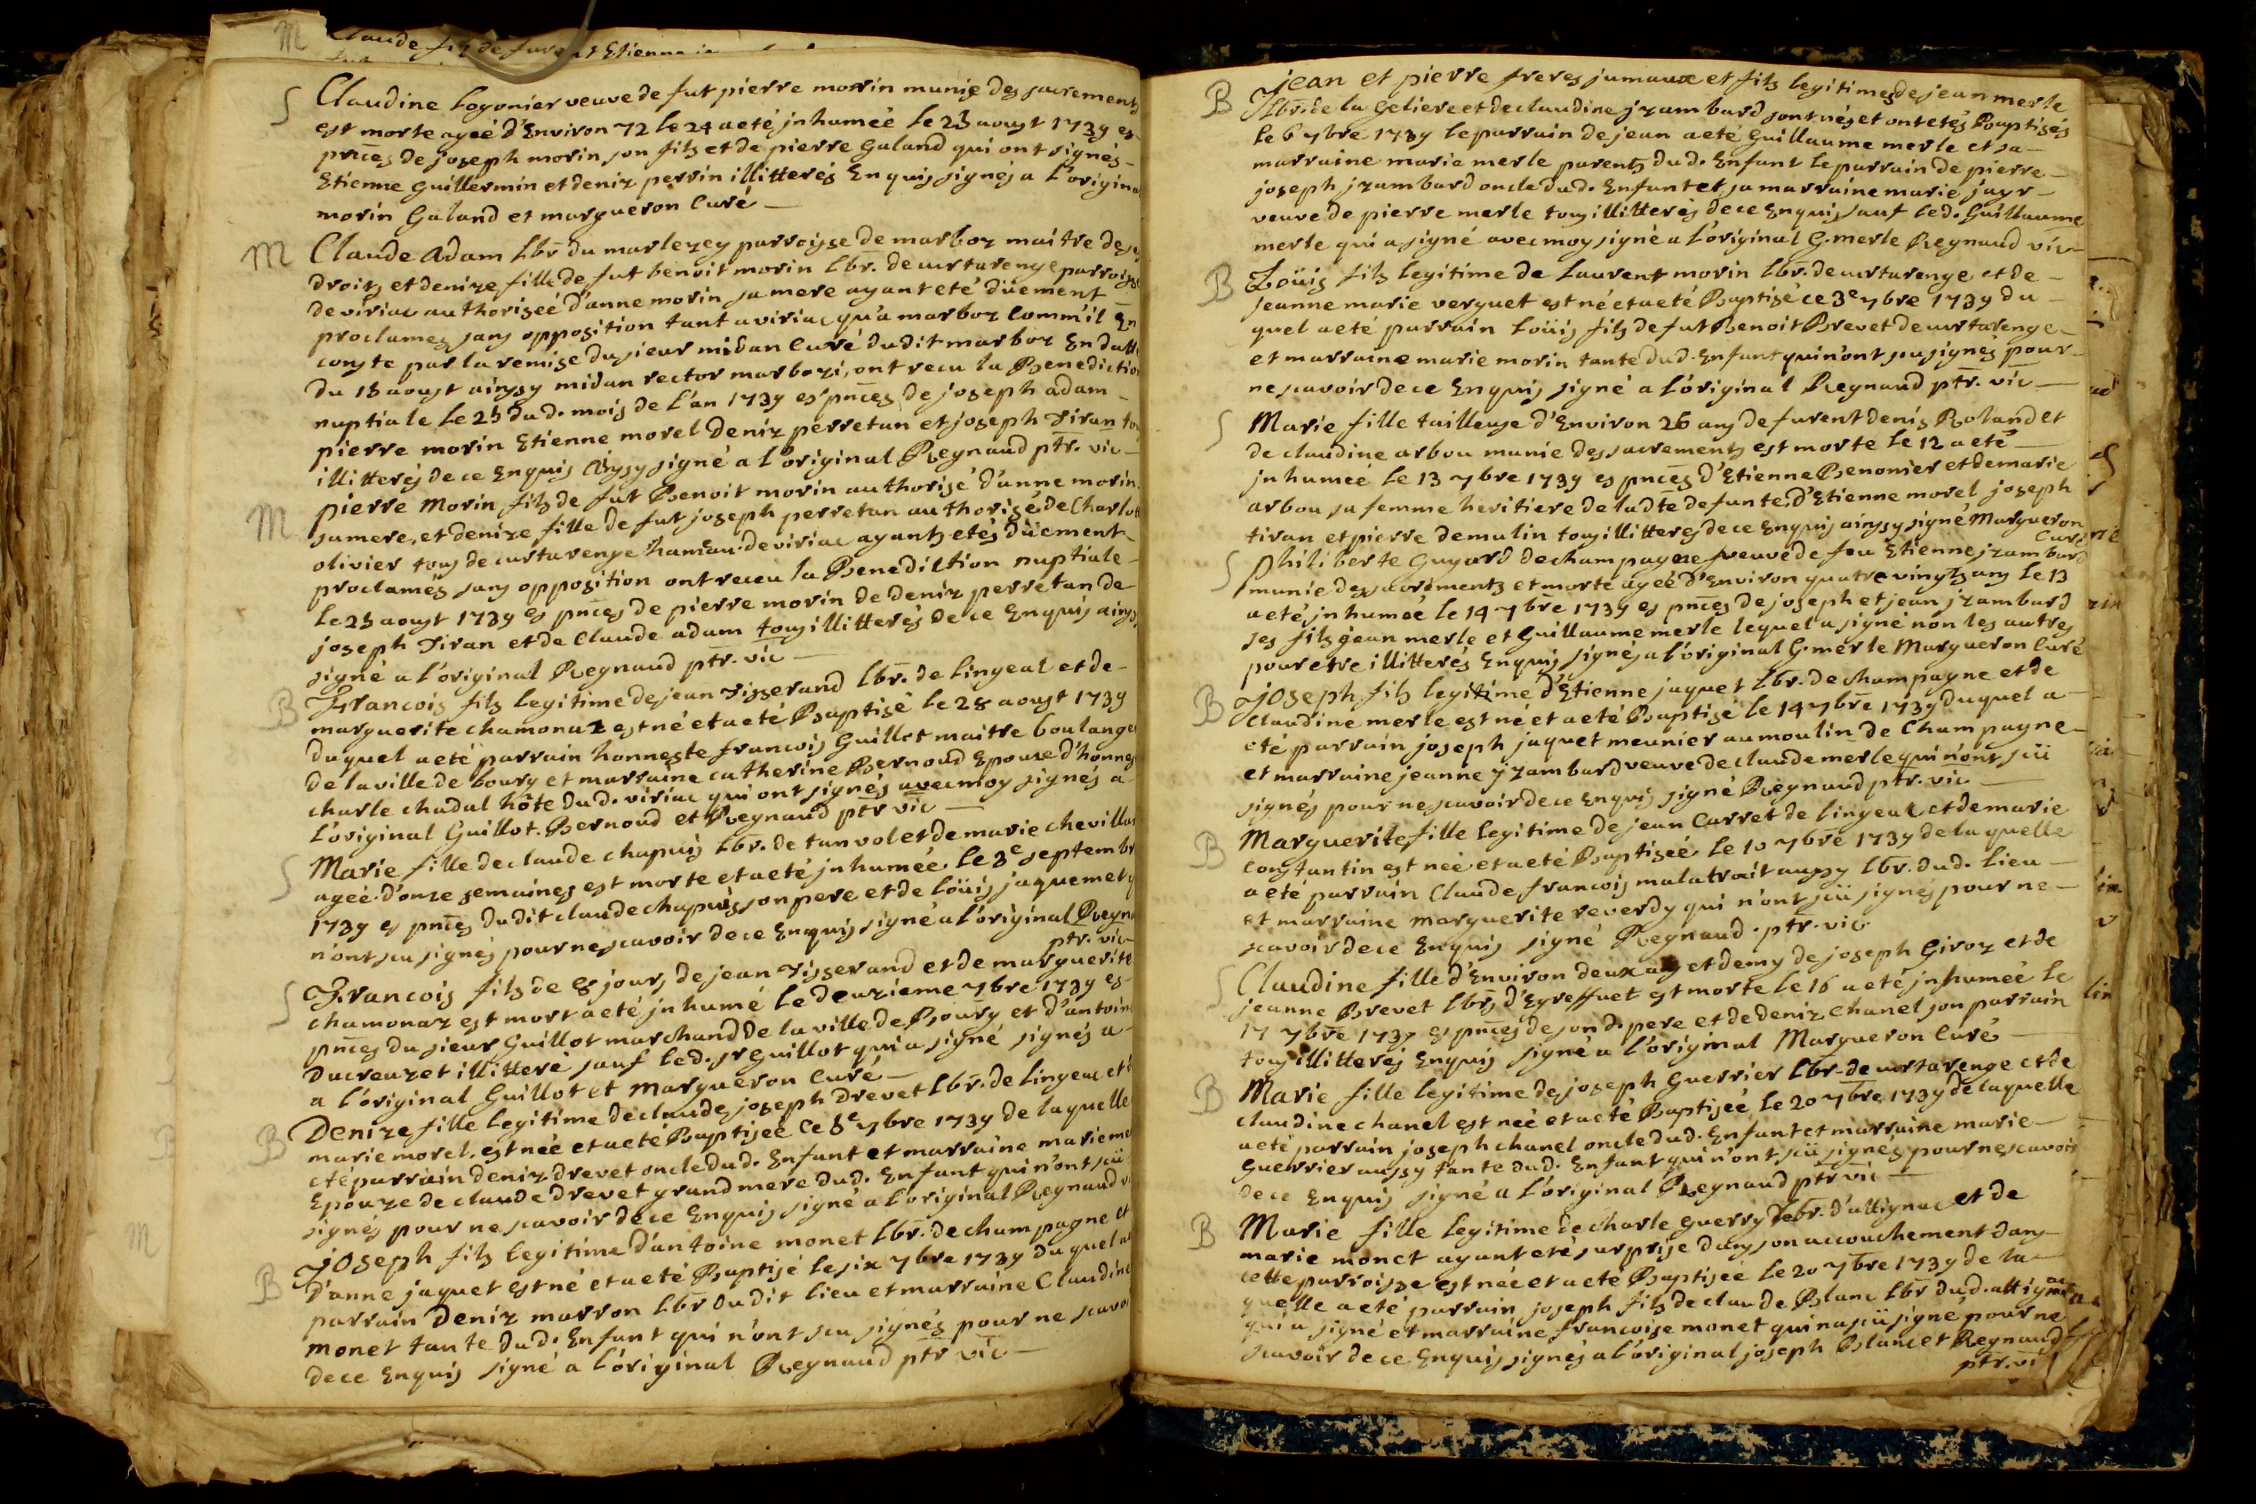 M Claude
S Claudine Logonier veuve de fut pierre morin munie des sacrements
est morte ageé d'Environ 72 le 24 a eté jnhumeé le 25 aoust 1739 es
pnces de joseph morin son fils et de pierre Galand qui ont signés
Etienne Guillermin et deniz perrin illitterés Enquis signés a L'origina
morin Galand et margueron Curé
M Claude Adam Lbr du marlerey parroisse de marboz maitre de ses
droits et denize fille de fut benoit morin Lbr. de curtarenge parroisse
de viriac authoriseé d'anne morin sa mere ayant eté düement
proclamez sans opposition tant a viriac qu'a marboz Comm'il En
conste par la remise du sieur midan Curé dudit marboz En datte
du 18 aoust ainssy midan rector marbozi, ont recu la Benediction
nuptiale le 25 dud. mois de L'an 1739 es pnces de joseph adam
pierre morin Etienne morel deniz perretan et joseph Tiran tous
illitterés de ce Enquis Ainssy signé a L'original Regnaud ptr. vic
M pierre Morin fils de fut Benoit morin authorisé d'anne morin
sa mere, et denize fille de fut joseph perretan authorisé de Charlot
olivier tous de curtarenge hameau de viriac ayants etés düement
proclamés sans opposition ont receu la Benediction nuptiale
le 25 aoust 1739 es pnces de pierre morin de deniz perretan de
joseph Tiran et de Claude adam tous illitterés de ce Enquis ainssy
signé a L'original Regnaud ptr. vic
B Francois fils legitime de jean Tisserand Lbr. de lingeat et de
marguerite chamonaz est né et a eté Baptisé le 28 aoust 1739
duquel a eté parrain honneste francois Guillot maitre boulanger
de la ville de bourg et marraine catherine Bernoud Epouze d'honnes
charle chadal hôte dud. viriac qui ont signés avec moy signés a
L'original Guillot. Bernoud et Regnaud ptr vic
S Marie fille de claude chapuis Lbr. de tanvol et de marie chevillon
ageé d'onze semaines est morte et a eté jnhumeé. le 3e septembr
1739 es pnces dudit claude chapuis son pere et de Loüis jaquemet q
n'ont scu signés pour ne scavoir de ce Enquis signé a L'original Regna
ptr. vic
S Francois fils de 8 jours de jean Tisserand et de marguerite
chamonaz est mort a eté jnhumé le deuzieme 7bre 1739 es
pnces du sieur Guillot marchand de la ville de Bourg et d'antoine
ducreuzet illitteré sauf led. sr Guillot qui a signé signés a
a L'original Guillot et Margueron Curé
B Denize fille legitime de claude joseph Drevet Lbr. de lingeat et
marie morel. est neé et a eté Baptiseé Ce 5e 7bre 1739 de laquelle
eté parrain deniz drevet oncle dud. Enfant et marraine marie mo
Epouze de claude Drevet grand mere dud. Enfant qui n'ont scü
signés pour ne scavoir de ce Enquis signé a L'original Regnaud v
B joseph fils legitime d'antoine monet Lbr. de champagne et
d'anne jaquet est né et a eté Baptisé le six 7bre 1739 duquel a
parrain Deniz marron Lbr dudit lieu et marraine Claudine
monet tante dud. Enfant qui n'ont scu signés pour ne scavoi
de ce Enquis signé a L'original Regnaud ptr vic
B jean et pierre freres jumaux et fils legitimes de jean merle
Lbr. de la Geliere et de claudine jzambard sont nés et ont etés Baptisés
le 6 7bre 1739 le parrain de jean a eté Guillaume merle et sa
marraine marie merle parents dud. Enfant le parrain de pierre
joseph jzambard oncle dud. Enfant et sa marraine marie jayr
veuve de pierre merle tous illitterés de ce Enquis sauf led. Guillaume
merle qui a signé avec moy signé a L'original G. merle Regnaud vic
B Loüis fils legitime de Laurent morin Lbr. de curtarenge et de
jeanne marie verguet est né et a eté Baptisé ce 3e 7bre 1739 du
quel a eté parrain Loüis fils de fut Benoit Brevet de curtarenge
et marraine marie morin tante dud. Enfant qui n'ont scu signés pour
ne scavoir de ce Enquis signé a L'original Regnaud ptr. vic
S Marie fille tailleuse d'Environ 26 ans de furent denis Roland et
de claudine arbou munie des sacrements est morte le 12 a eté
jnhumeé le 13 7bre 1739 es pnces d'Etienne Benonier et de marie
arbou sa femme heritiere de ladte defunte, d'Etienne morel joseph
tiran et pierre demulin tous illitterés de ce Enquis ainssy signé Margueron
Curé
S philiberte Guyard de champagne veuve de feu Etienne jzambard
munie des sacrements et morte ageé d'Environ quatre vingts ans le 13
a eté jnhumeé le 14 7bre 1739 es pnces de joseph et jean jzambard
ses fils jean merle et Guillaume merle lequel a signé non les autres
pour etre illitterés Enquis signés a L'original G. merle Margueron Curé
B joseph fils legitime d'Etienne jaquet Lbr. de champagne et de
Claudine merle est né et a eté Baptisé le 14 7bre 1739 duquel a
eté parrain joseph jaquet meunier au moulin de Champagne
et marraine jeanne jzambard veuve de claude merle qui n'ont scü
signés pour ne scavoir de ce Enquis signé Regnaud ptr. vic
B Marguerite fille legitime de jean Carret de lingeat et de marie
constantin est neé et a eté Baptiseé le 10 7bre 1739 de laquelle
a eté parrain Claude francois malatrait aussy Lbr. dud. lieu
et marraine marguerite reverdy qui n'ont scü signés pour ne
scavoir de ce Enquis signé Regnaud. ptr. vic.
S Claudine fille d'Environ deux ans et demy de joseph Giroz et de
jeanne Brevet Lbrs d'Egreffuet est morte le 16 a eté jnhumeé le
17 7bre 1739 es pnces de son d. pere et de deniz Chanel son parrain
tous illitterés Enquis signé a L'original Margueron Curé
B Marie fille legitime de joseph Guerrier Lbr. de curtarenge et de
claudine chanel est neé et a eté Baptiseé le 20 7bre 1739 de laquelle
a eté parrain joseph chanel oncle dud. Enfant et marraine marie
Guerrier aussy tante dud. Enfant qui n'ont scü signés pour ne scavoir
de ce Enquis signé a L'original Regnaud ptr vic
B Marie fille legitime de charle Guerry Lbr. d'attignac et de
marie monet ayant eté surprise dans son accouchement dans
cette parroisse est neé et a eté Baptiseé le 20 7bre 1739 de la
quelle a eté parrain joseph fils de claude Blanc Lbr dud. attignac
qui a signé et marraine francoise monet qui na scü signé pour ne
scavoir de ce Enquis signés a L'original joseph Blanc et Regnaud
ptr. vi